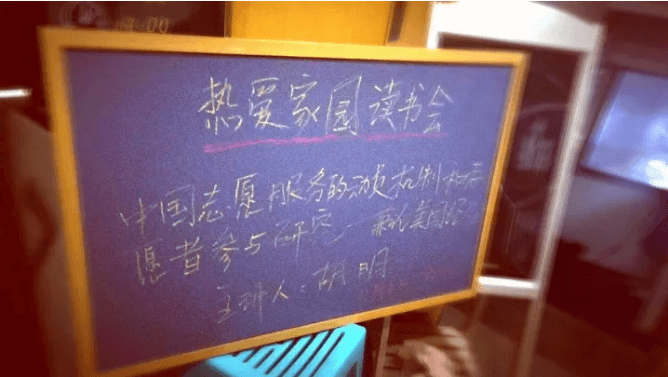 热爱家园读书会
中国志愿服务的动员机制和志
愿者参与研究—兼论美国经
主讲人：胡明